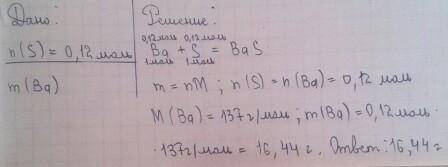 Дано:
Решение:
n(S) = 0,12 моль
m(Ba)
0,12 моль 0,12 моль
Ba + S = BaS
1 моль 1 моль
m = nM ; n(S) = n(Ba) = 0,12 моль
M(Ba) = 137 г/моль ; m(Ba) = 0,12 моль ·
· 137 г/моль = 16,44 г. Ответ: 16,44 г